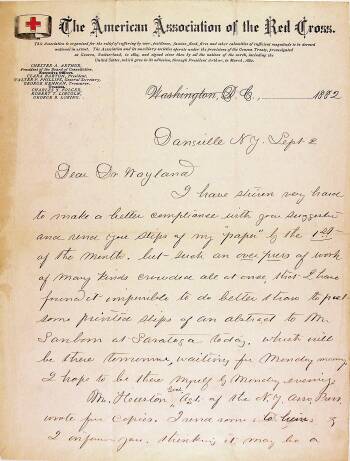 The American Association of the Red Cross.
This Association is organized for the relief of suffering by war, pestilence, famine, flood, fires and other calamities of sufficient magnitude to be deemed
national in extent. The Association and its auxiliary societies operate under the provisions of the Geneva Treaty, promulgated
at Geneva, Switzerland, in 1864, and signed since then by all the nations of the world, including the
United States, which gave to its adhesion, through President Arthur, in March, 1882.
CHESTER A. ARTHUR,
President of the Board of Consultation.
Executive Officers.
CLARA BARTON, President,
WALTER P. PHILLIPS, General Secretary,
GEORGE KENNAN, Treasurer.
Trustees.
CHARLES J. FOLGER,
ROBERT T. LINCOLN,
GEORGE B. LORING.
Washington, D. C., 1882
Dansville N.Y. Sept 2
Dear Dr Wayland
I have striven very hard
to make a better compliance with your
and send you slips of my "paper" by the 1st
of the month. but such an over press of work
of many kinds crowded all at once, that I have
found it impossible to do better than to post
some printed slips of an abstract to Mr.
Sanborn at Saratoga today, which will
be there tomorrow, waiting for Monday
I hope to be there myself by Monday evening.
Mr. Hueston, Genl Agt. of the N.Y. Asso. Press
wrote for copies. I send some to him &
I inform you, thinking it may be a